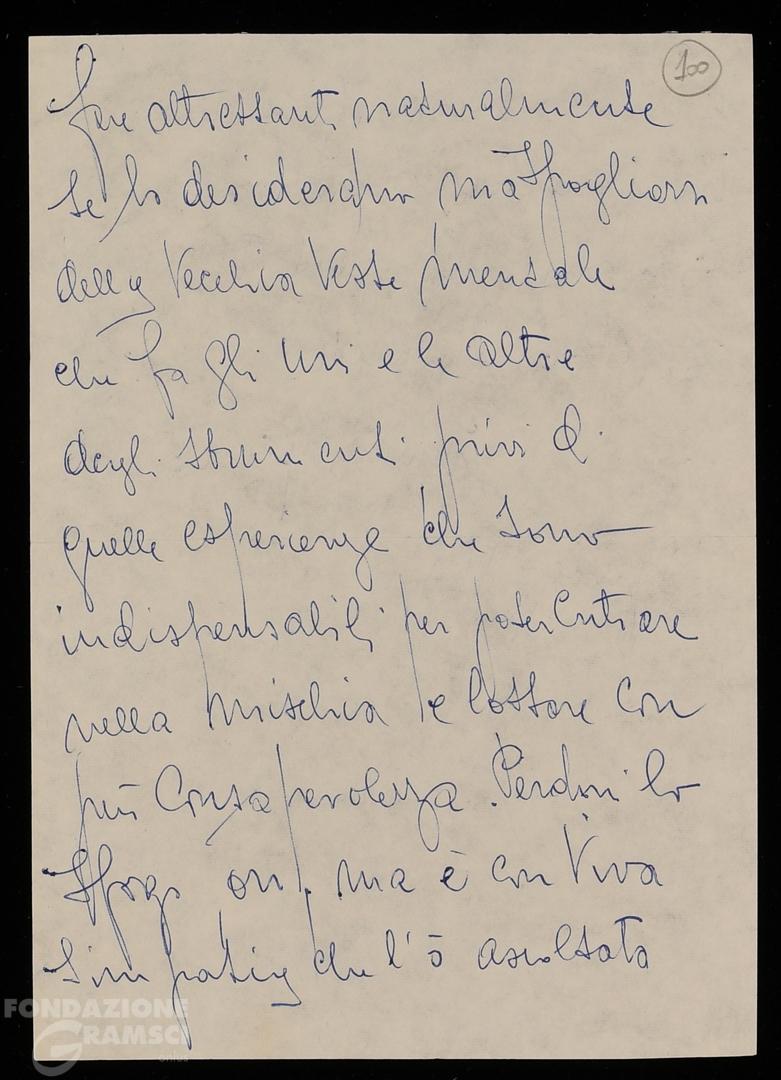 100
fare altrettanto naturalmente
se lo desiderano ma spogliarsi
della Vecchia Veste mentale
che fa gli uni e le altre
degli strumenti privi di
quelle esperienze che sono
indispensabili per poter Entrare
nella mischia e lottare con
più Consapevolezza. Perdoni lo
sfogo on. ma è con Viva
simpatia che l'ò ascoltata
FONDAZIONE
GRAMSCI
onlus